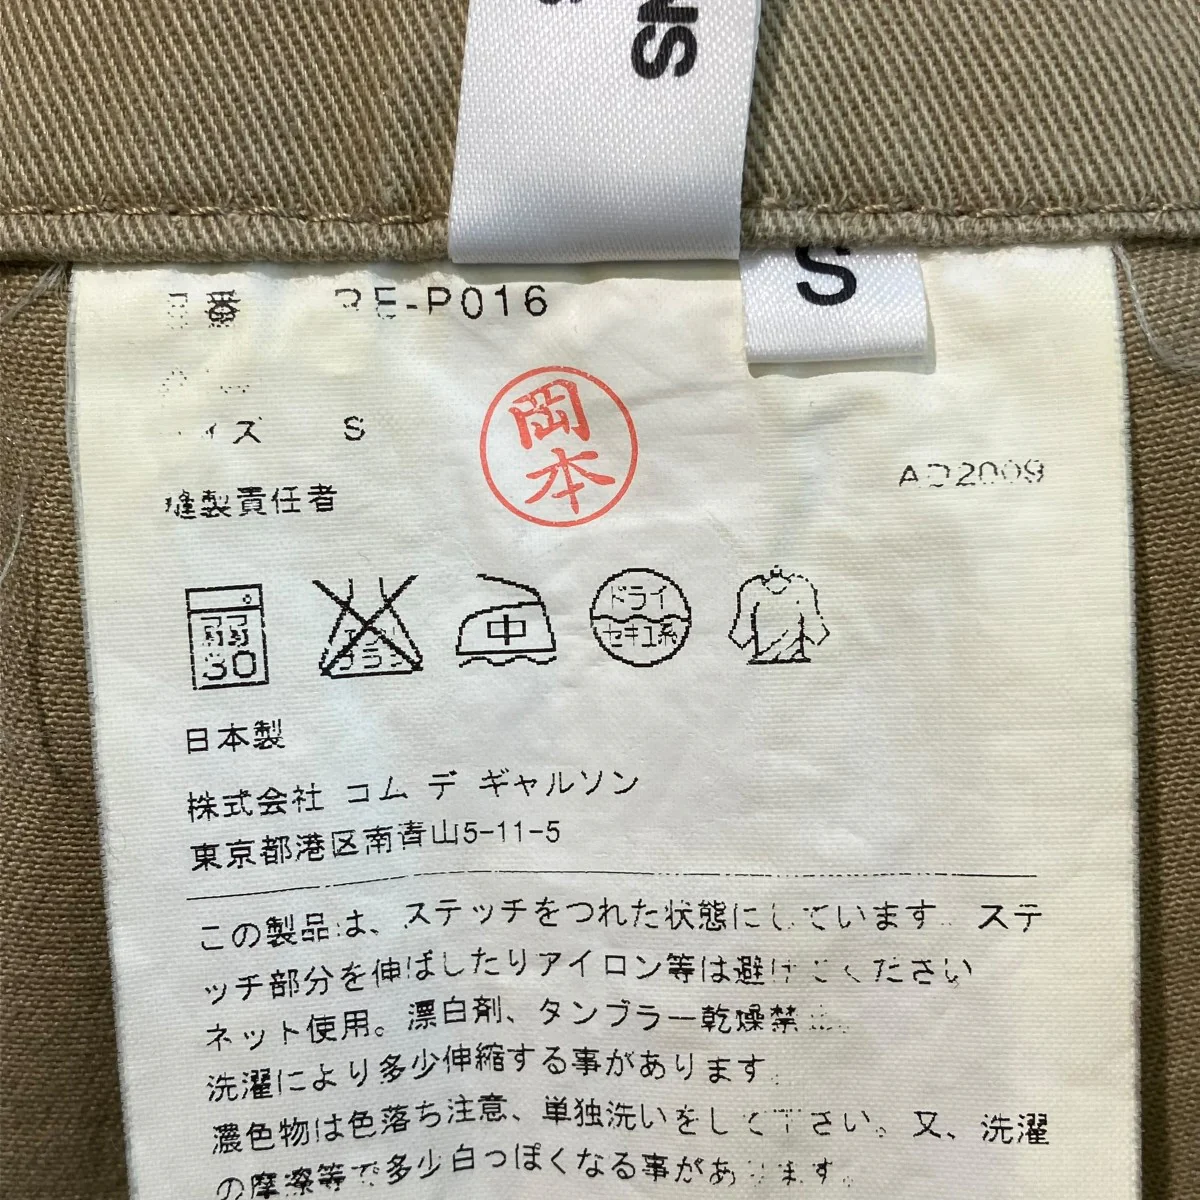 NS
S
品番 RE-P016
サイズ S
岡本
AD2009
縫製責任者
弱
30
エンソ
サラシ
中
ドライ
セキユ系
日本製
株式会社 コム デ ギャルソン
東京都港区南青山5-11-5
この製品は、ステッチをつれた状態にしています。ステ
ッチ部分を伸ばしたりアイロン等は避けてください
ネット使用。漂白剤、タンブラー乾燥禁止。
洗濯により多少伸縮する事があります。
濃色物は色落ち注意、単独洗いをして下さい。又、洗濯
の摩擦等で多少白っぽくなる事があります。